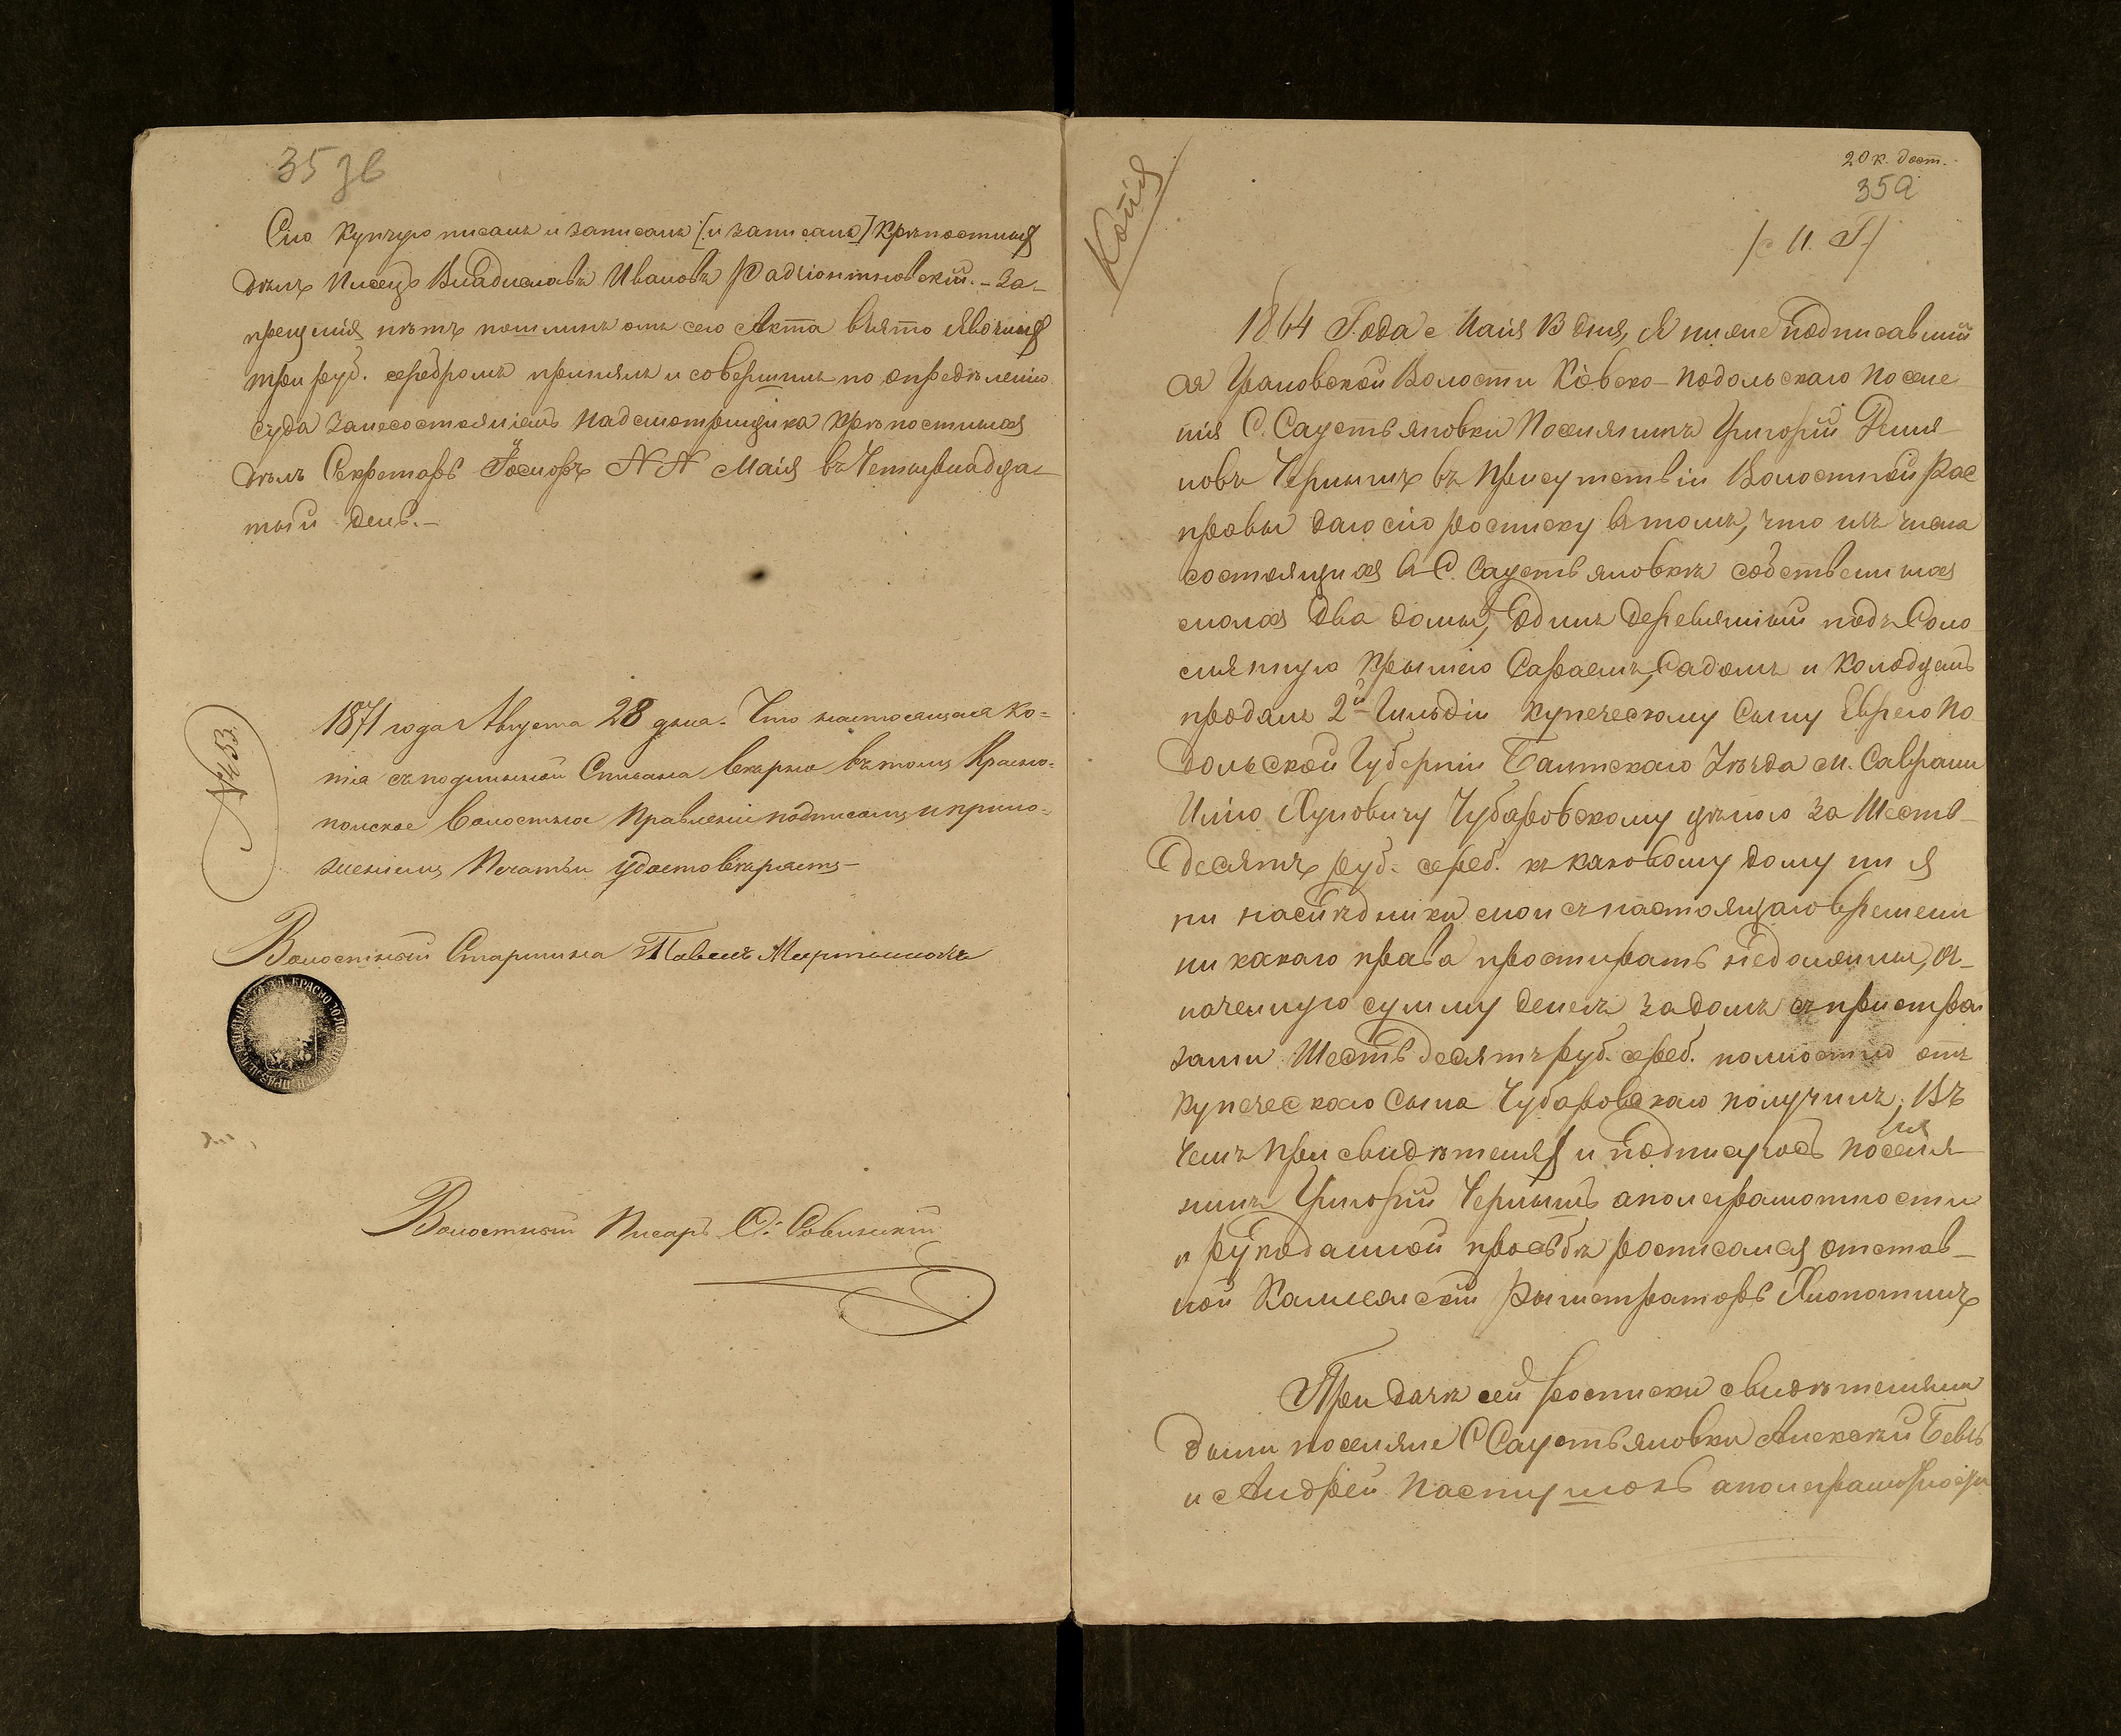 35 зв
Сію купчую писалъ и записалъ [и записалъ] крѣпостныхъ
дѣлъ Писецъ Владиславъ Ивановъ Радіонтковскій. – За-
прещенія нѣтъ пошлинъ отъ сего Акта взято явочныхъ
три руб. серебромъ принялъ и совершилъ по опредѣленію
суда за несостояніемъ надсмотрщика крѣпостныхъ
дѣлъ Секретарь NN Маія въ Четырнадца-
тый день. –
№ 453.
1871 года Августа 28 дня. Что настоящая ко-
пія съ подлинной Списана вѣрно въ томъ
Волостное Правленіе подписомъ и прило-
женіемъ Печати удостовѣряетъ –
Волостной Старшина Павелъ Мартыновъ
Волостной Писарь О. Савицкій
Копія
20 к. дост.
359
/с М. П./
1864 Года Маія 13 дня, Я ниже подписавшій
ся Волости Кіевско-Подольскаго поселе
нія С. Саустьяновки Поселянинъ Григорій Демья
новъ Чернышъ въ присутствіи Волостной Рас
правы даю сію росписку въ томъ, что изъ числа
состоящихъ въ С. Саустьяновкѣ собственныхъ
моихъ два домы, Одинъ деревянный подъ Соло
мянную крышею Сараемъ, Садомъ и Колодцемъ
продалъ 2й Гильдіи купеческому Сыну Еврею По-
дольской Губерніи Балтскаго Уѣзда м. Саврани
Чубаровскому цѣною за Шесть-
десятъ руб. сереб. къ каковому дому ни я
ни наслѣдники мои съ настоящаго времени
ни какого права простирать недолжны, а-
наченную сумму денегъ за домъ съ пристрой
ками Шестьдесятъ руб. сереб. полностію отъ
купеческаго Сына Чубаровскаго получилъ; Въ
чемъ при свидѣтеляхъ и подписуюсь поселя
нинъ Григорій Чернышъ а по неграмотности
и рукоданной просьбѣ росписался отстав-
ной Коллежскій Рыгистраторъ
При дачѣ сей росписки свидѣтелями
были поселяне С Саустьяновки Алексѣй Бевзъ
и Андрей Пастушокъ а по неграмотности